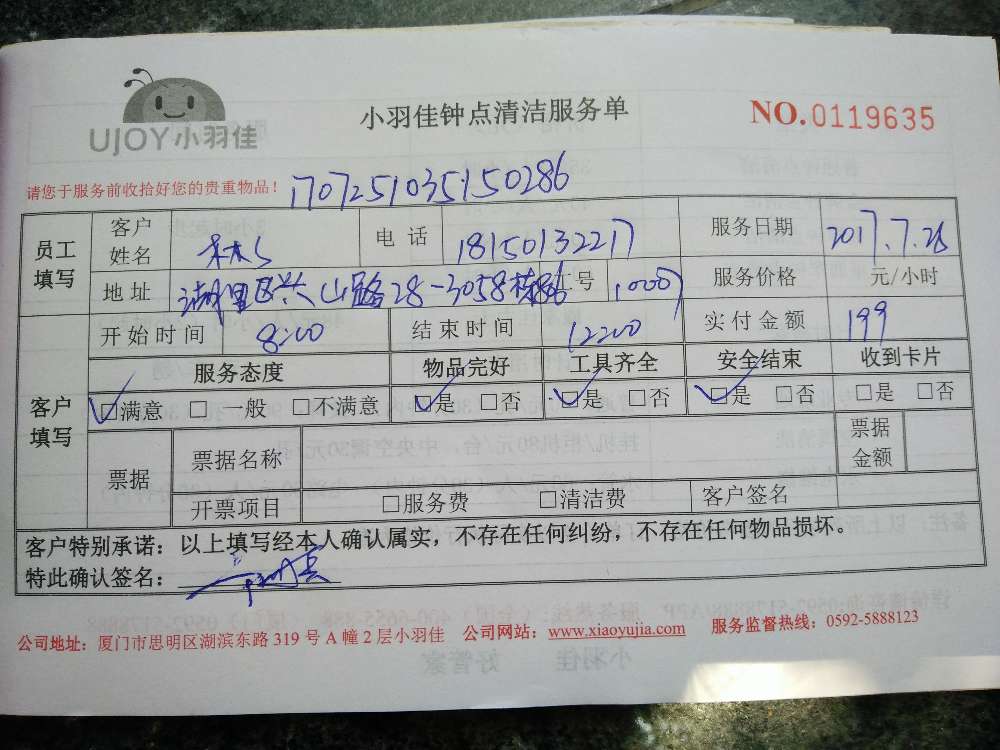 UJOY小羽佳
小羽佳钟点清洁服务单
NO.0119635
请您于服务前收拾好您的贵重物品！
1707251035150286
员工填写 客户姓名 林 电话 18150132217 服务日期 2017.7.26
地址 湖里区兴山路28-3058栋86 工号 服务价格 元/小时
开始时间 8:00 结束时间 12:00 实付金额 199
客户填写 服务态度 物品完好 工具齐全 安全结束 收到卡片
☑满意 □一般 □不满意 ☑是 □否 ☑是 □否 ☑是 □否 □是 □否
票据 票据名称 票据金额
开票项目 □服务费 □清洁费 客户签名
客户特别承诺：以上填写经本人确认属实，不存在任何纠纷，不存在任何物品损坏。
特此确认签名：
公司地址：厦门市思明区湖滨东路 319 号 A 幢 2 层小羽佳 公司网站：www.xiaoyujia.com 服务监督热线：0592-5888123